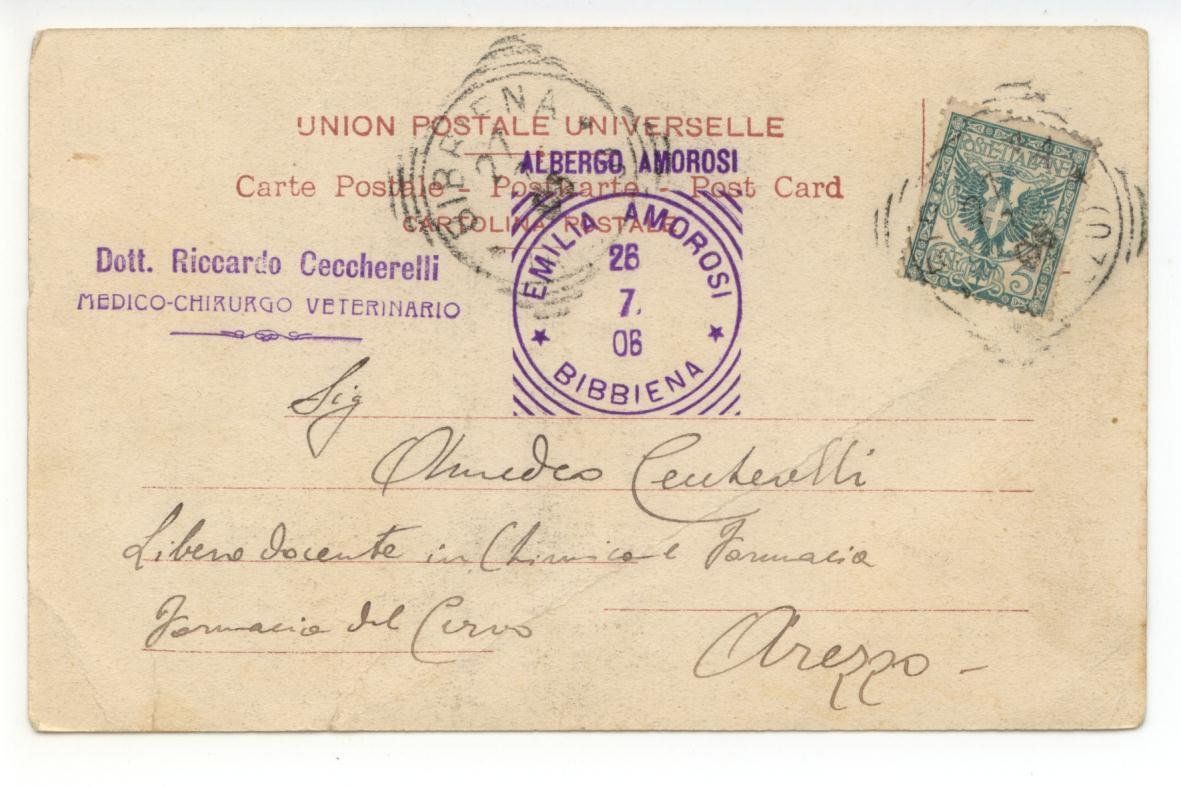 UNION POSTALE UNIVERSELLE
ALBERGO AMOROSI
Carte Postale - Postkarte - Post Card
CARTOLINA POSTALE
BIBBIENA
27
EMILIA AMOROSI
26
7.
06
BIBBIENA
Dott. Riccardo Ceccherelli
MEDICO-CHIRURGO VETERINARIO
POSTE ITALIANE
CENTESIMI 5
Sig
Olmedeo Ceccherelli
Libero docente in Chimica e Farmacia
Farmacia del Cervo
Arezzo -